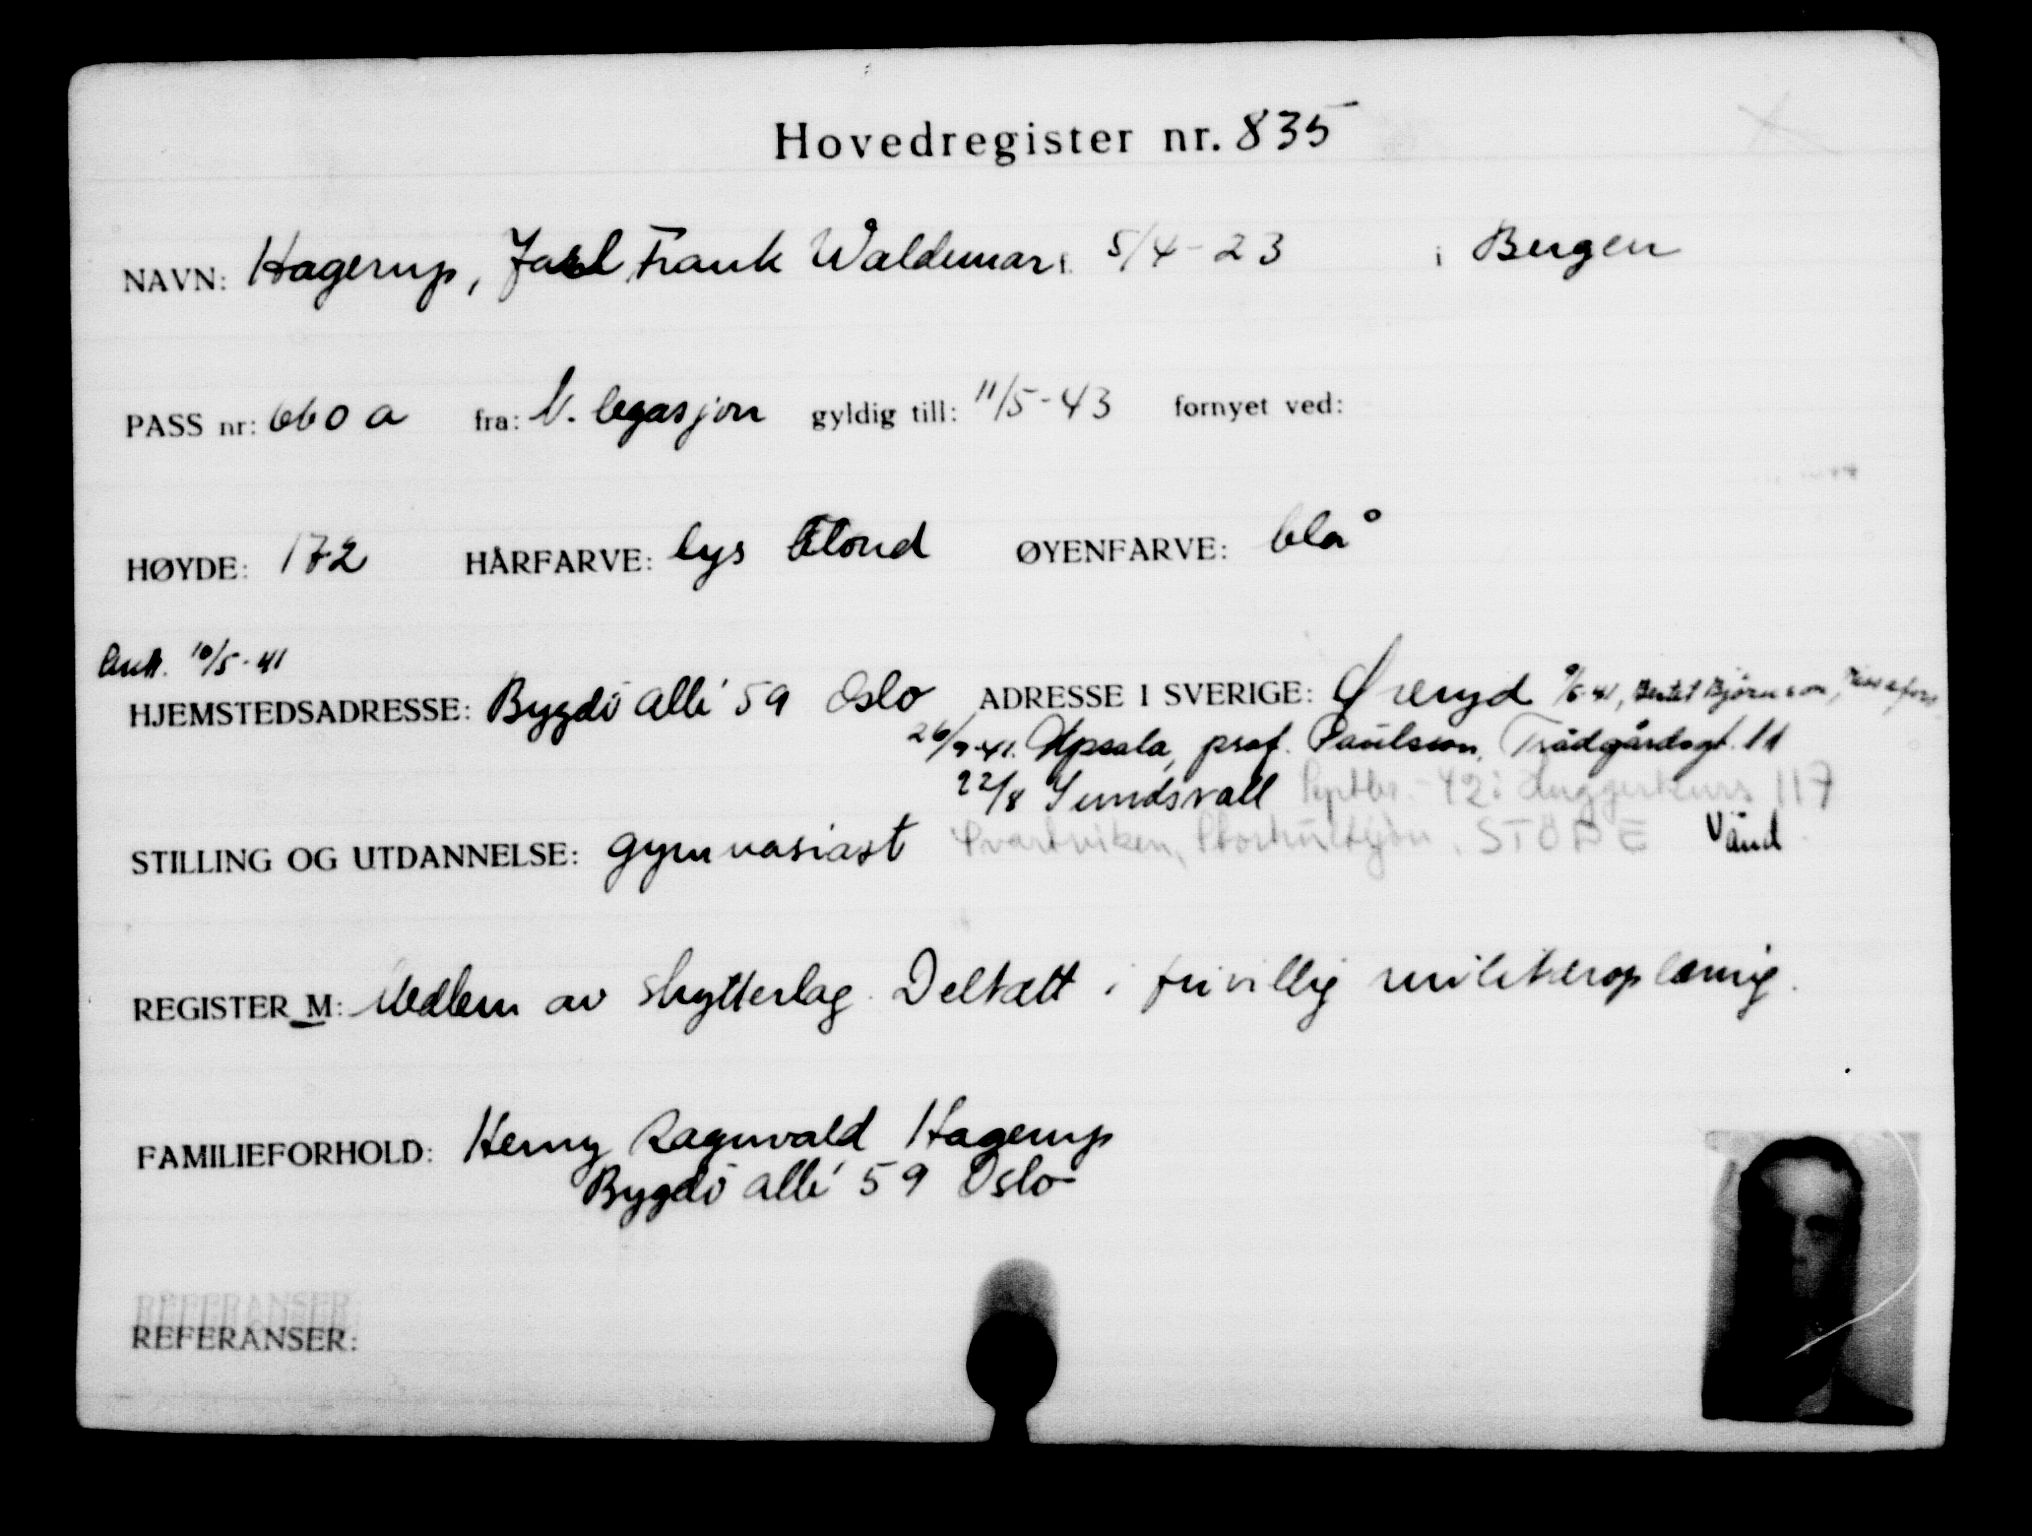 Hovedregister nr. 835
NAVN: Hagerup, Jarl Frank Waldemar f. 5/4-23 i Bergen
PASS nr: 660 a fra: N. legasjon gyldig till: 11/5-43 fornyet ved:
HØYDE: 172 HÅRFARVE: lys blond ØYENFARVE: blå
Ank. 10/5-41
HJEMSTEDSADRESSE: Bygdö allé 59 Oslo ADRESSE I SVERIGE: Öreryd 9/6-41, Bertel Björnson,
26/9-41. Upsala, prof. Paulsson, Trädgårdsgt. 11
22/8 Sundsvall Septbr.-42: Huggerkurs 117
STILLING OG UTDANNELSE: gymnasiast Svartviken, STÖDE Vänd
REGISTER M: Medlem av skytterlag. Deltatt i frivillig militæroplæring.
FAMILIEFORHOLD: Henry Ragnvald Hagerup
Bygdö allé 59 Oslo
REFERANSER
REFERANSER: